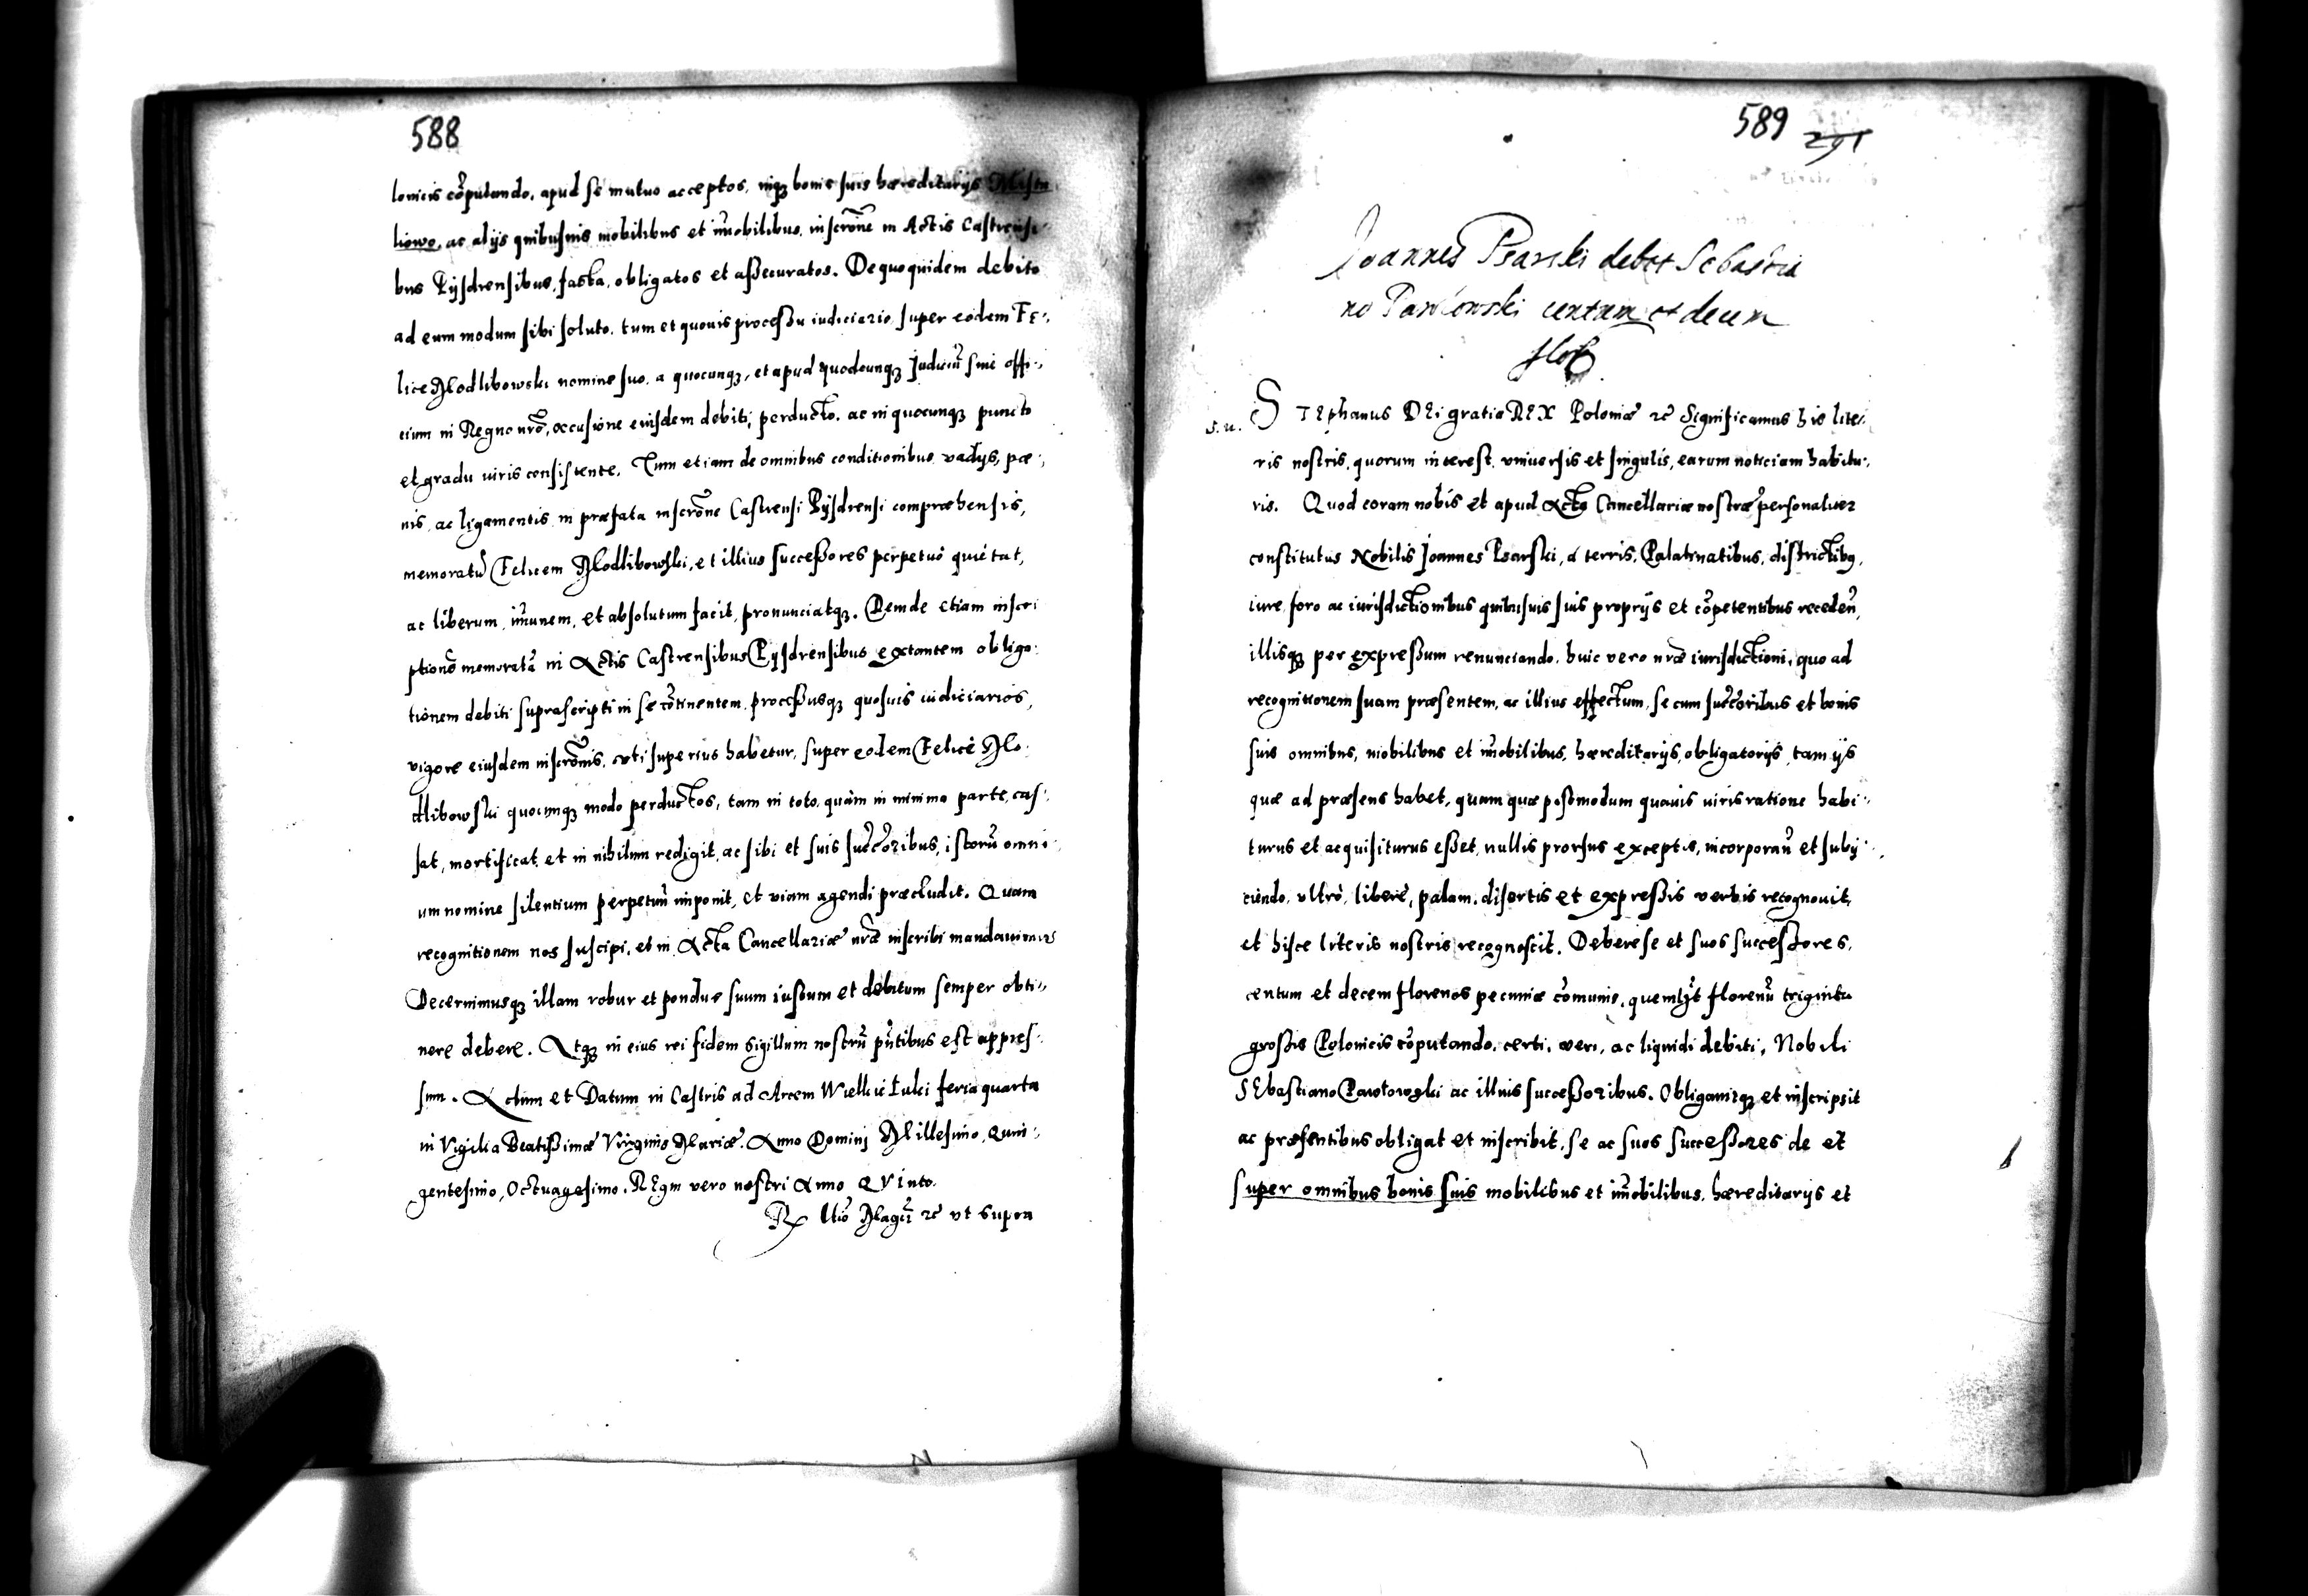 588
lonicis cõputando, apud se mutuo acceptos, inq3 bonis suis hæreditarijs
liowo, ac alijs quibusuis mobilibus et im̃obilibus, inscrõne in Actis Castrensi-
bus Pysdrensibus, facta, obligatos et assecuratos. De quo quidem debito
ad eum modum sibi soluto, tum et quouis processu iudiciario super eodem Fe-
lice Modlibowski nomine suo, a quocunq3, et apud quodcunq3 Judiciũ siue offi-
cium in Regno nrõ, occasione eiusdem debiti perducto, ac in quocunq3 puncto
et gradu iuris consistente. Tum etiam de omnibus conditionibus vadijs, pœ-
nis, ac ligamentis in præfata inscrõne Castrensi Pysdrensi compræhensis,
memoratũ Felicem Modlibowski, et illius successores perpetuò quietat,
ac liberum, im̃unem, et absolutum facit, pronunciatq3. Deinde etiam inscri
ptionẽ memoratã in Actis Castrensibus Pysdrensibus extantem obliga-
tionem debiti suprascripti in se cõtinentem, processusq3 quosuis iudiciarios,
vigore eiusdem inscrõnis, vti superius habetur, super eodem Felice Mo-
dlibowski quocunq3 modo perductos, tam in toto, quàm in minima parte, cas-
sat, mortificat, et in nihilum redigit, ac sibi et suis succõribus, istorũ omni-
um nomine silentium perpetuũ imponit, et viam agendi præcludit. Quam
recognitionem nos suscipi, et in Acta Cancellariæ nrã inscribi mandauimus
Decernimusq3 illam robur et pondus suum iustum et debitum semper obti-
nere debere. Atq3 in eius rei fidem Sigillum nostrũ pñtibus est appres-
sum. Actum et Datum in Castris ad Arcem Wielkie Łuki feria quarta
in Vigilia Beatissimæ Virginis Mariæ. Anno Domini Millesimo, Quin-
gentesimo, Octuagesimo. REgni vero nostri Anno QVinto.
Rx Ułio Magci 2c vt supra
589 291
Joannes Psarski debet Sebastia
no Pawlowski centum et decem
flor
s. n. STEphanus DEi gratia REX Poloniæ 2c Significamus his lite-
ris nostris, quorum interest, vniuersis et singulis, earum noticiam habitu-
ris. Quod coram nobis et apud Acta Cancellariæ nostræ personaliter
constitutus Nobilis Joannes Psarski, à terris, Palatinatibus, districtibq,
iure, foro ac iurisdictionibus quibusuis suis proprijs et cõpetentibus recedeñ,
illisq3 per expressum renunciando, huic vero nrã iurisdictioni, quo ad
recognitionem suam præsentem, ac illius effectum, se cum succõribus et bonis
suis omnibus, mobilibus et im̃obilibus, hæreditarijs, obligatorijs, tam ijs
quæ ad præsens habet, quam quæ postmodum quauis iuris ratione habi-
turus et acquisiturus esset, nullis prorsus exceptis, incorporañ et subij-
ciendo, vltrò, liberè, palam, disertis et expressis verbis recognouit,
et hisce literis nostris recognoscit. Debere se et suos successores,
centum et decem florenos pecuniæ cõmunis, quemlꝫt florenũ triginta
grossis Polonicis cõputando, certi, veri, ac liquidi debiti, Nobili
SEbastiano Pawłowski ac illius successoribus. Obligauitq3 et inscripsit
ac præsentibus obligat et inscribit, se ac suos successores de et
super omnibus bonis suis mobilibus et im̃obilibus, hæreditarijs et